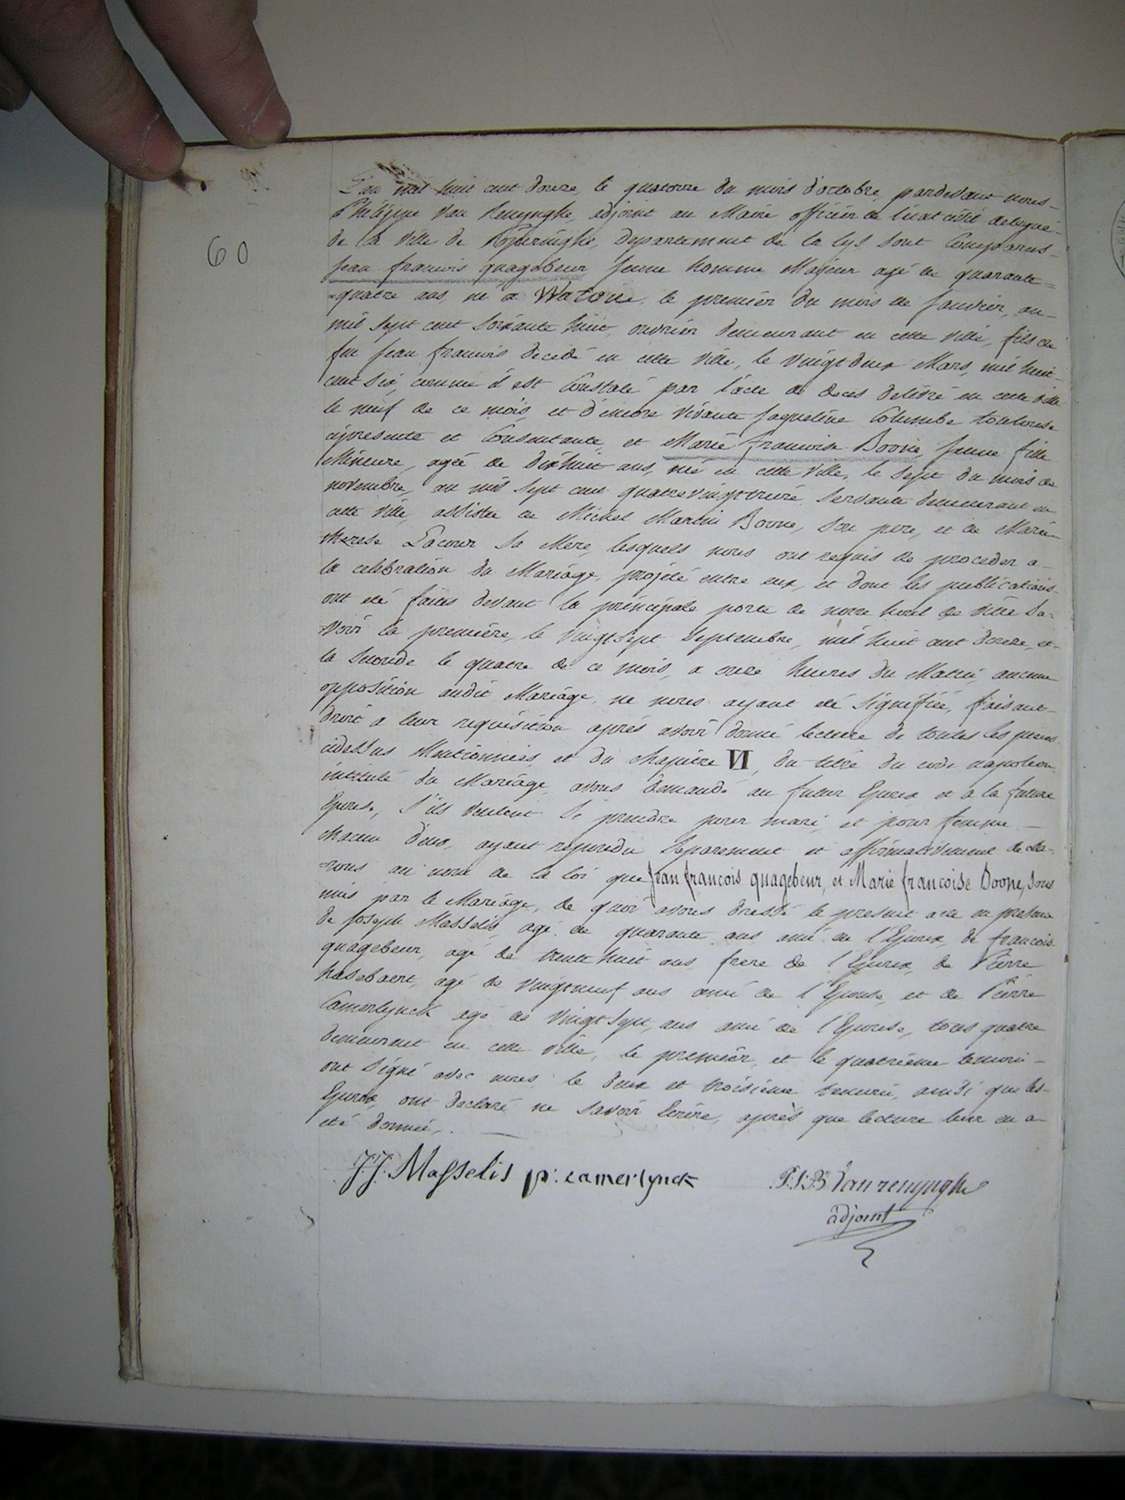 60
L'an mil huit cent douze, le quatorze du mois d'octobre, pardevant nous
Philippe Van Renynghe, adjoint au Maire officier de l'état civil delegué
de la ville de Poperinghe, departement de la Lys sont Comparus
Jean francois quagebeur jeune homme Majeur agé de quarante
quatre ans, né a Watoue, le premier du mois de Janvier, an
mil sept cent soixante huit, ouvrier demeurant en cette ville, fils de
feu Jean francois decedé en cette ville, le vingt deux Mars, mil huit
cent six, comme il est Constaté par l'acte de deces delivré en cette ville
le neuf de ce mois, et d'encore vivante Jaqueline Colombe
cipresente et Consentante et Marie francoise Boone, jeune fille
Mineure, agée de dixhuit ans, née en cette ville, le sept du mois de
novembre, an mil sept cent quatrevingt treize servante demeurant en
cette ville, assistée de Michel Martin Boone, son pere, et de Marie
therese Lacour sa Mere, lesquels nous ont requis de proceder a
la celebration du Mariage projeté entre eux, et dont les publications
ont été faites devant la principale porte de notre hotel de ville sa-
voir la premiere, le vingt sept Septembre, mil huit cent douze, et
la seconde le quatre de ce mois, a onze heures du Matin, aucune
opposition audit Mariage ne nous ayant été signifiée, faisant
droit a leur requisition après avoir donné lecture de toutes les pieces
cidessus Mentionnées et du chapitre VI, du titre du code napoleon
intitulé du Mariage, avons demandé au futur Epoux et à la future
Epouse, s'ils veulent se prendre pour mari, et pour femme
chacun d'eux, ayant repondu separement et affirmativement decla-
rons au nom de la loi que Jean francois quagebeur, et Marie francoise Boone, sont
unis par le Mariage, de quoi avons dressé le present acte en presence
de Joseph Masselis agé de quarante ans ami de l'Epoux, de francois
quagebeur, agé de trente huit ans frere de l'Epoux, de Pierre
hasebaert, agé de vingtneuf ans ami de l'Epouse, et de Pierre
Camerlynck agé de vingt sept ans ami de l'Epouse, tous quatre
demeurant en cette ville, le premier et le quatrieme temoin
ont signé avec nous le deux et troisieme temoin, ainsi que les
Epoux, ont declaré ne savoir Ecrire, après que lecture leur en a
été donnée,.
J.J. Masselis p: camerlynck P.J.B. Vanrenynghe
adjoint